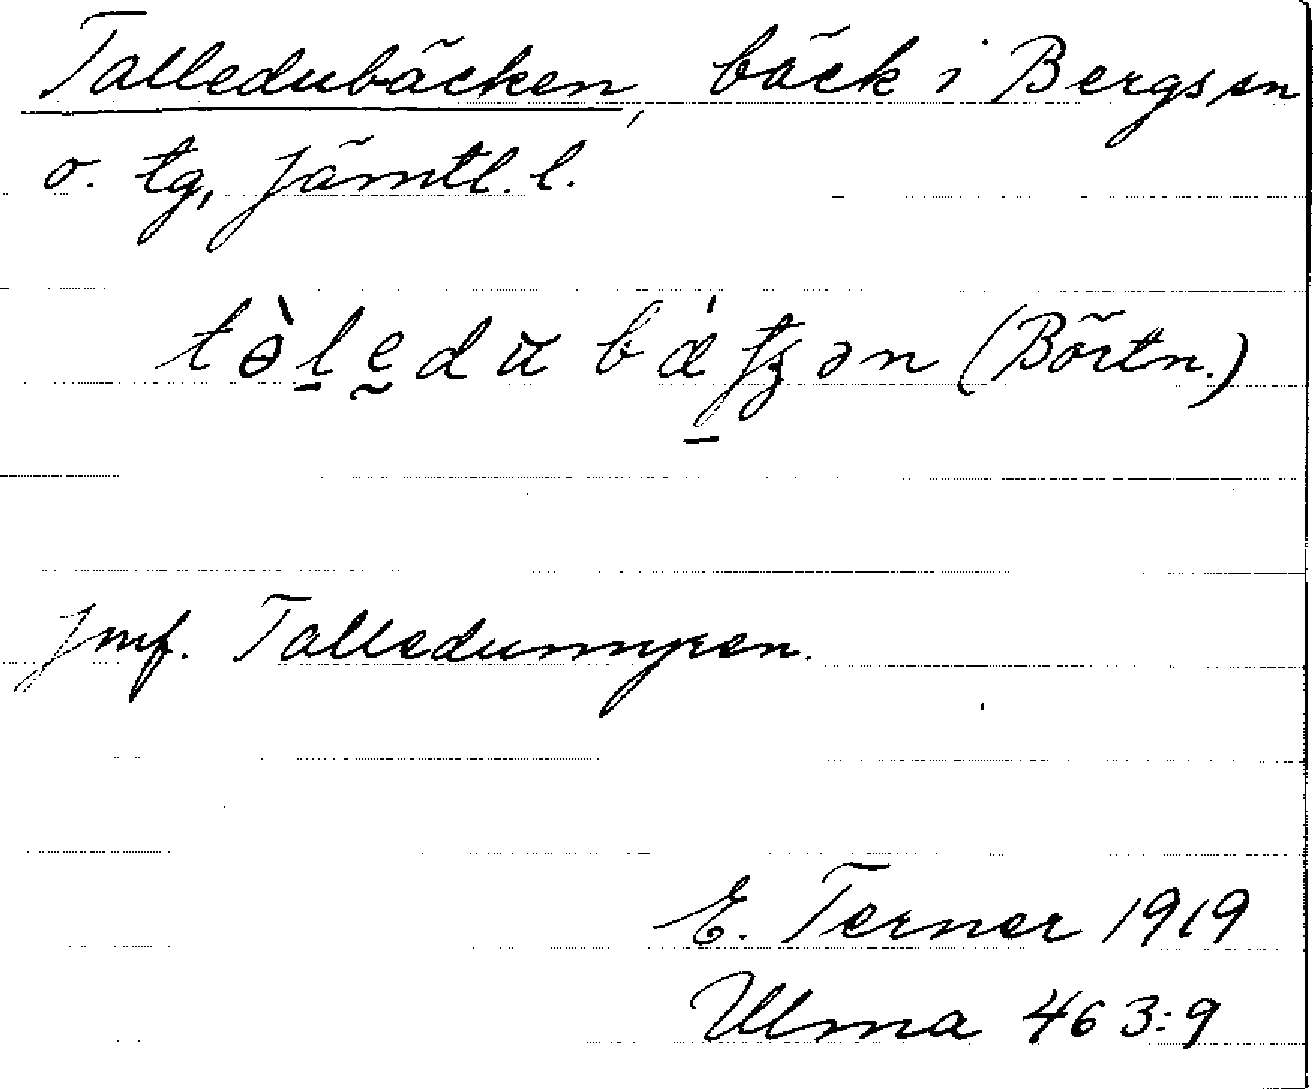 Talledubäcken, bäck i Bergs sn
o. tg, Jämtl. l.
(Börtn.)
Jmf. Talledumyren.
E. Terner 1919
Ulma 463:9